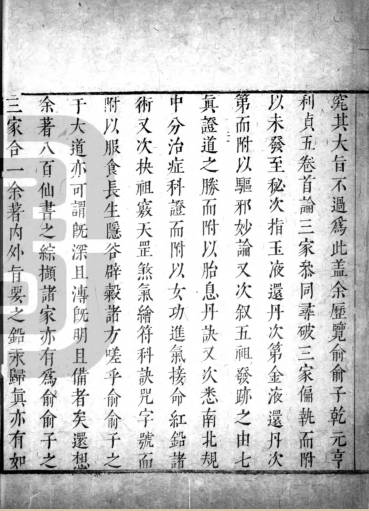 究其大旨不過爲此盖余歷覽俞俞子乾元亨
利貞五卷首論三家叅同尋破三家偏執而附
以未發至秘次指玉液還丹次第金液還丹次
第而附以驅邪妙論又次叙五祖發跡之由七
眞證道之勝而附以胎息丹訣又次悉南北規
中分治症科證而附以女功進氣接命紅鉛諸
術又次抉祖竅天罡煞氣繪符科訣咒字號而
附以服食長生隱谷辟穀諸方嗟乎俞俞子之
于大道亦可謂旣深且漙旣明且備者矣還想
余著八百仙書之綜擷諸家亦有爲俞俞子之
三家合一余著内外旨要之鉛汞歸眞亦有如